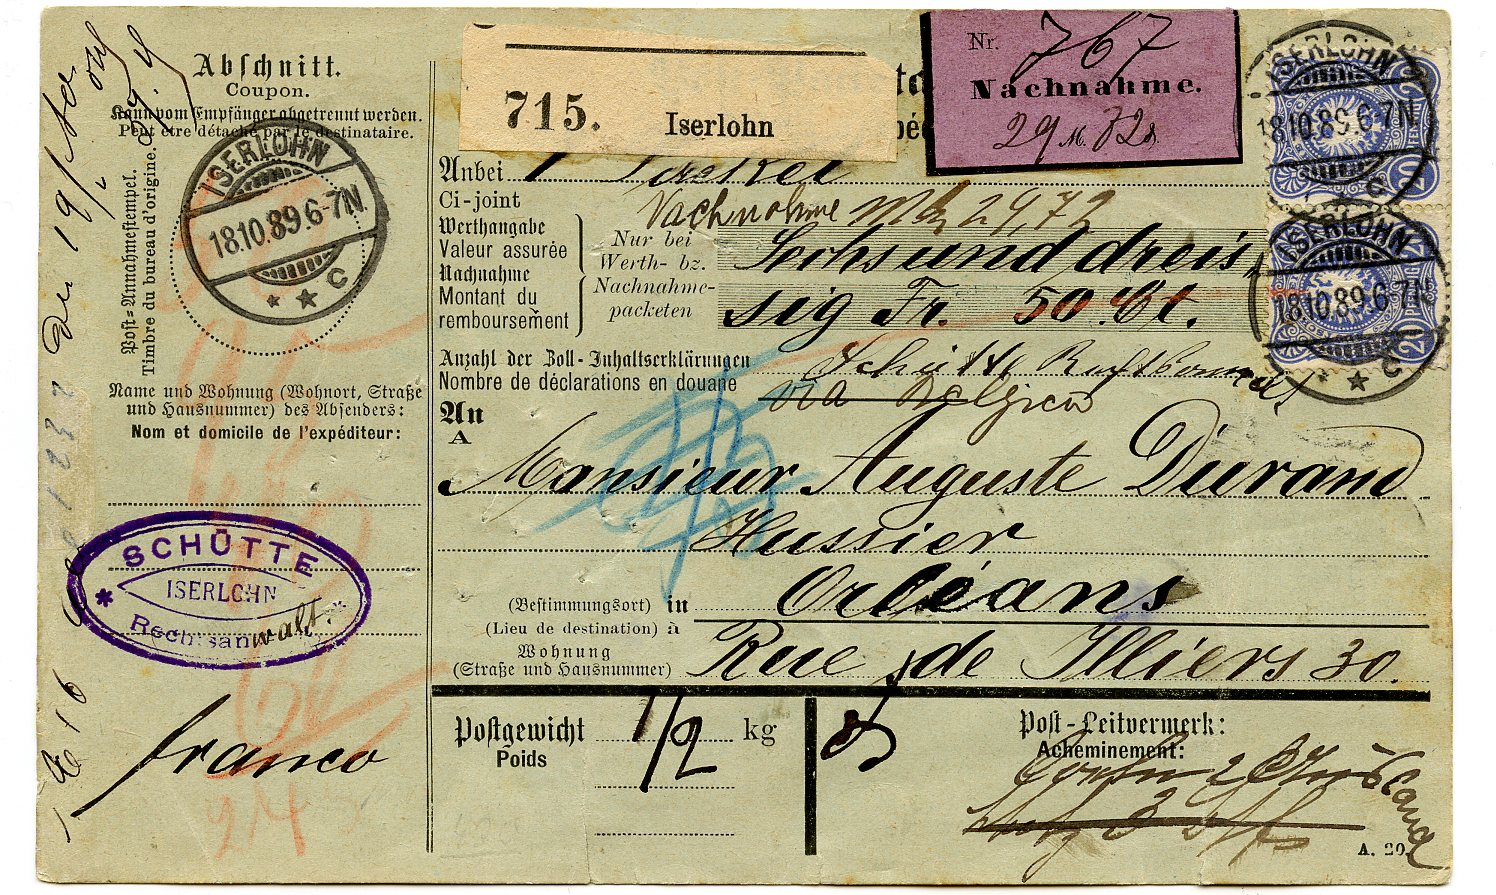 Abschnitt.
Coupon.
Kann vom Empfänger abgetrennt werden.
Peut être détaché par le destinataire.
Post-Annahmestempel.
Timbre du bureau d'origine.
ISERLOHN
18.10.89.6-7N
* ★ C
Name und Wohnung (Wohnort, Straße
und Hausnummer) des Absenders:
Nom et domicile de l'expéditeur:
SCHÜTTE
* ISERLOHN *
Rechtsanwalt.
franco
715. Iserlohn
Nr. 767
Nachnahme.
29 M. 72
ISERLOHN
18.10.89.6-7N
★ C
20 PFENNIG 20
ISERLOHN
18.10.89.6-7N
* ★ C
20 PFENNIG 20
Anbei 1 Packet
Ci-joint
Nachnahme Mk 29,72
Werthangabe
Valeur assurée
Nachnahme
Montant du
remboursement
Nur bei
Werth- bz.
Nachnahme-
packeten
Sechsunddreis
sig Fr. 50 Ct.
Anzahl der Zoll-Inhaltserklärungen
Nombre de déclarations en douane
Schütte
via Belgien
An
A
Monsieur Auguste Durand
Hussier
(Bestimmungsort) in Orléans
(Lieu de destination) à
Wohnung
(Straße und Hausnummer) Rue de Illiers 30.
Postgewicht 1/2 kg
Poids
Post-Leitvermerk:
Acheminement:
A. 20.